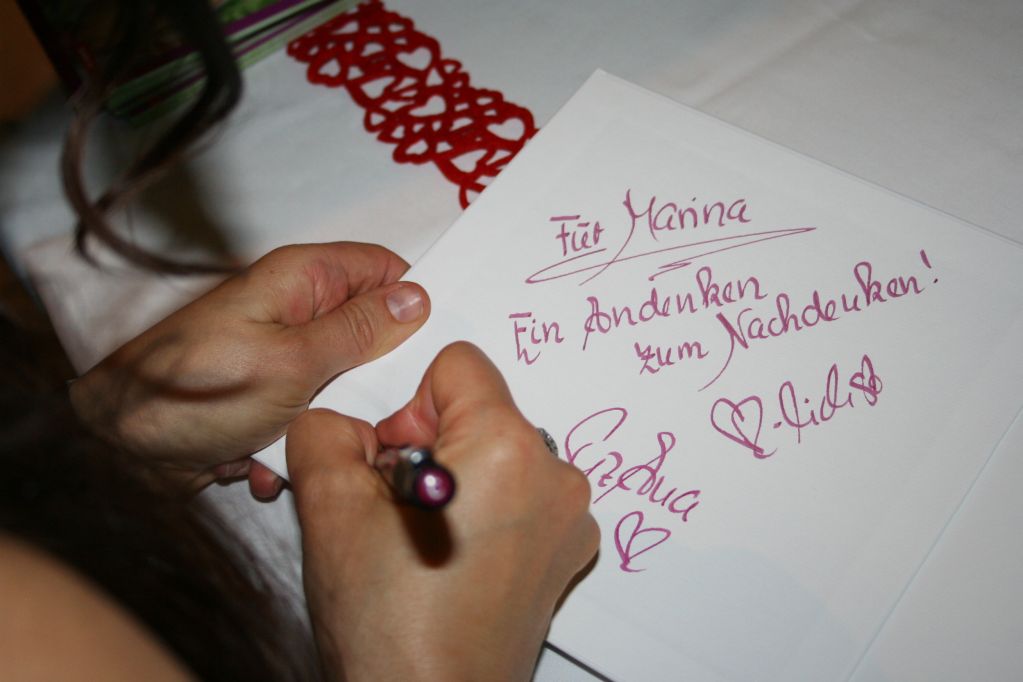 Für Marina
Ein Andenken
zum Nachdenken!
♡-lichst